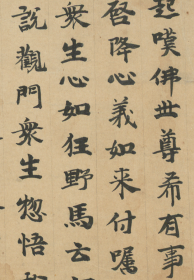 起嘆佛世尊希有事
啓降心義如来付囑
衆生心如狂野馬云
說觀門衆生惣悟